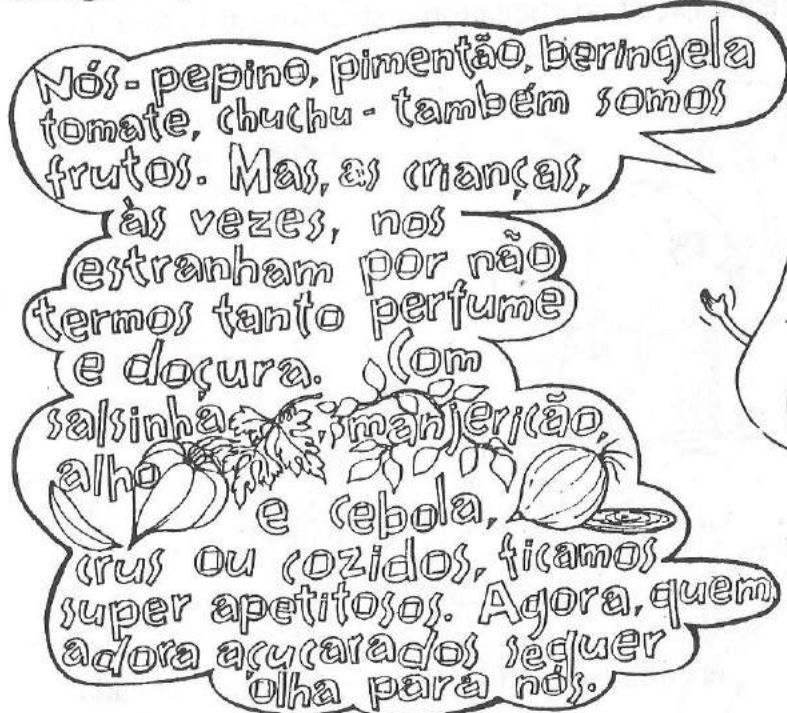 Nós - pepino, pimentão, beringela
tomate, chuchu - também somos
frutos. Mas, as crianças,
às vezes, nos
estranham por não
termos tanto perfume
e doçura. Com
salsinha, manjericão,
alho
e cebola,
crus ou cozidos, ficamos
super apetitosos. Agora, quem
adora açucarados sequer
olha para nós.